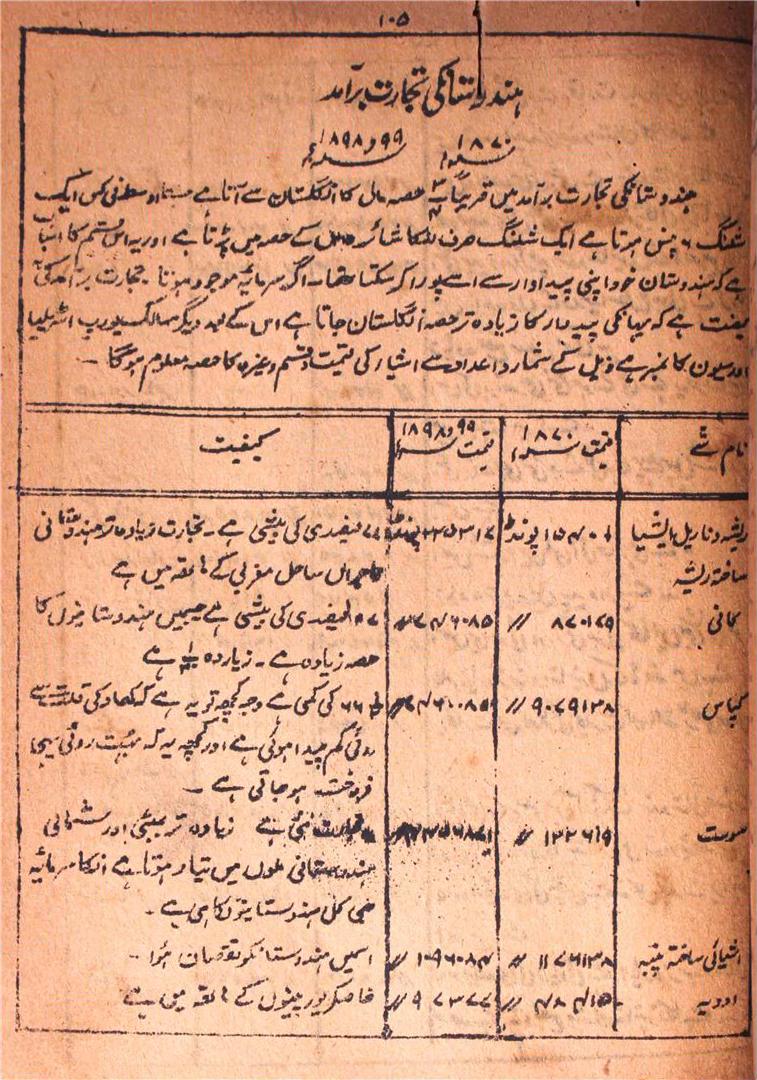 ۱۰۵
ہندوستانکی تجارت برآمد
۱۸۷۰ء ۹۹ و ۱۸۹۸ء
ہندوستانکی تجارت برآمد میں قریباً ۳/۴ حصہ مال کا انگلستان سے آتا ہے اوسط فی کس ایک
شلنگ ۶ پنس ہوتا ہے ایک شلنگ صرف لنکا شائر والوں کے حصہ میں پڑتا ہے اور یہ اس قسم کا اسباب
ہے کہ ہندوستان خود اپنی پیداوار سے اسے پورا کر سکتا تھا۔ اگر سرمایہ موجود ہوتا۔ تجارت برآمد کی
کیفیت ہے کہ یہانکی پیداوار کا زیادہ تر حصہ انگلستان جاتا ہے اس کے بعد دیگر ممالک یورپ اسٹریلیا
اور سیون کا نمبر ہے ذیل کے شمار و اعداد سے اشیاء کی قیمت و قسم وغیرہ کا حصہ معلوم ہوگا ۔
نام شے قیمت ۱۸۷۰ء قیمت ۹۹ و ۱۸۹۸ء کیفیت
ریشہ و ناریل ایشیا ۱۵۴۰۶ پونڈ فیصدی کی بیشی ہے ۔ تجارت زیادہ تر ہندوستانی
ساختہ ریشہ تاجران ساحل مغربی کے ہاتھ میں ہے
کافی ۸۷۰۱۷۹ // فیصدی کی بیشی ہے جسمیں ہندوستانیوں کا
حصہ زیادہ ہے ۔ ہے
کپاس ۹۰۷۹۱۳۸ // کی کمی ہے وجہ کچھ تو یہ ہے کہ کھاد کی قلت سے
روئی کم پیدا ہوئی ہے اور کچھ یہ کہ بہت روئی یہیں
فروخت ہو جاتی ہے ۔
سوت ۱۳۲۶۱۹ // تجارت نئی ہے زیادہ تر بمبئی اور شمالی
ہندوستانی ملوں میں تیار ہوتا ہے انکا سرمایہ
بھی کل ہندوستانیوں کا ہی ہے ۔
اشیائی ساختہ پنبہ ۱۱۷۶۱۳۸ // ۱۰۹۶۰۸۴ // اسمیں ہندوستانکو نقصان ہوا ۔
ادویہ ۴۸۴۱۵۰ // ۹۷۳۷۷ // خاصکر یورپینوں کے ہاتھ میں ہے